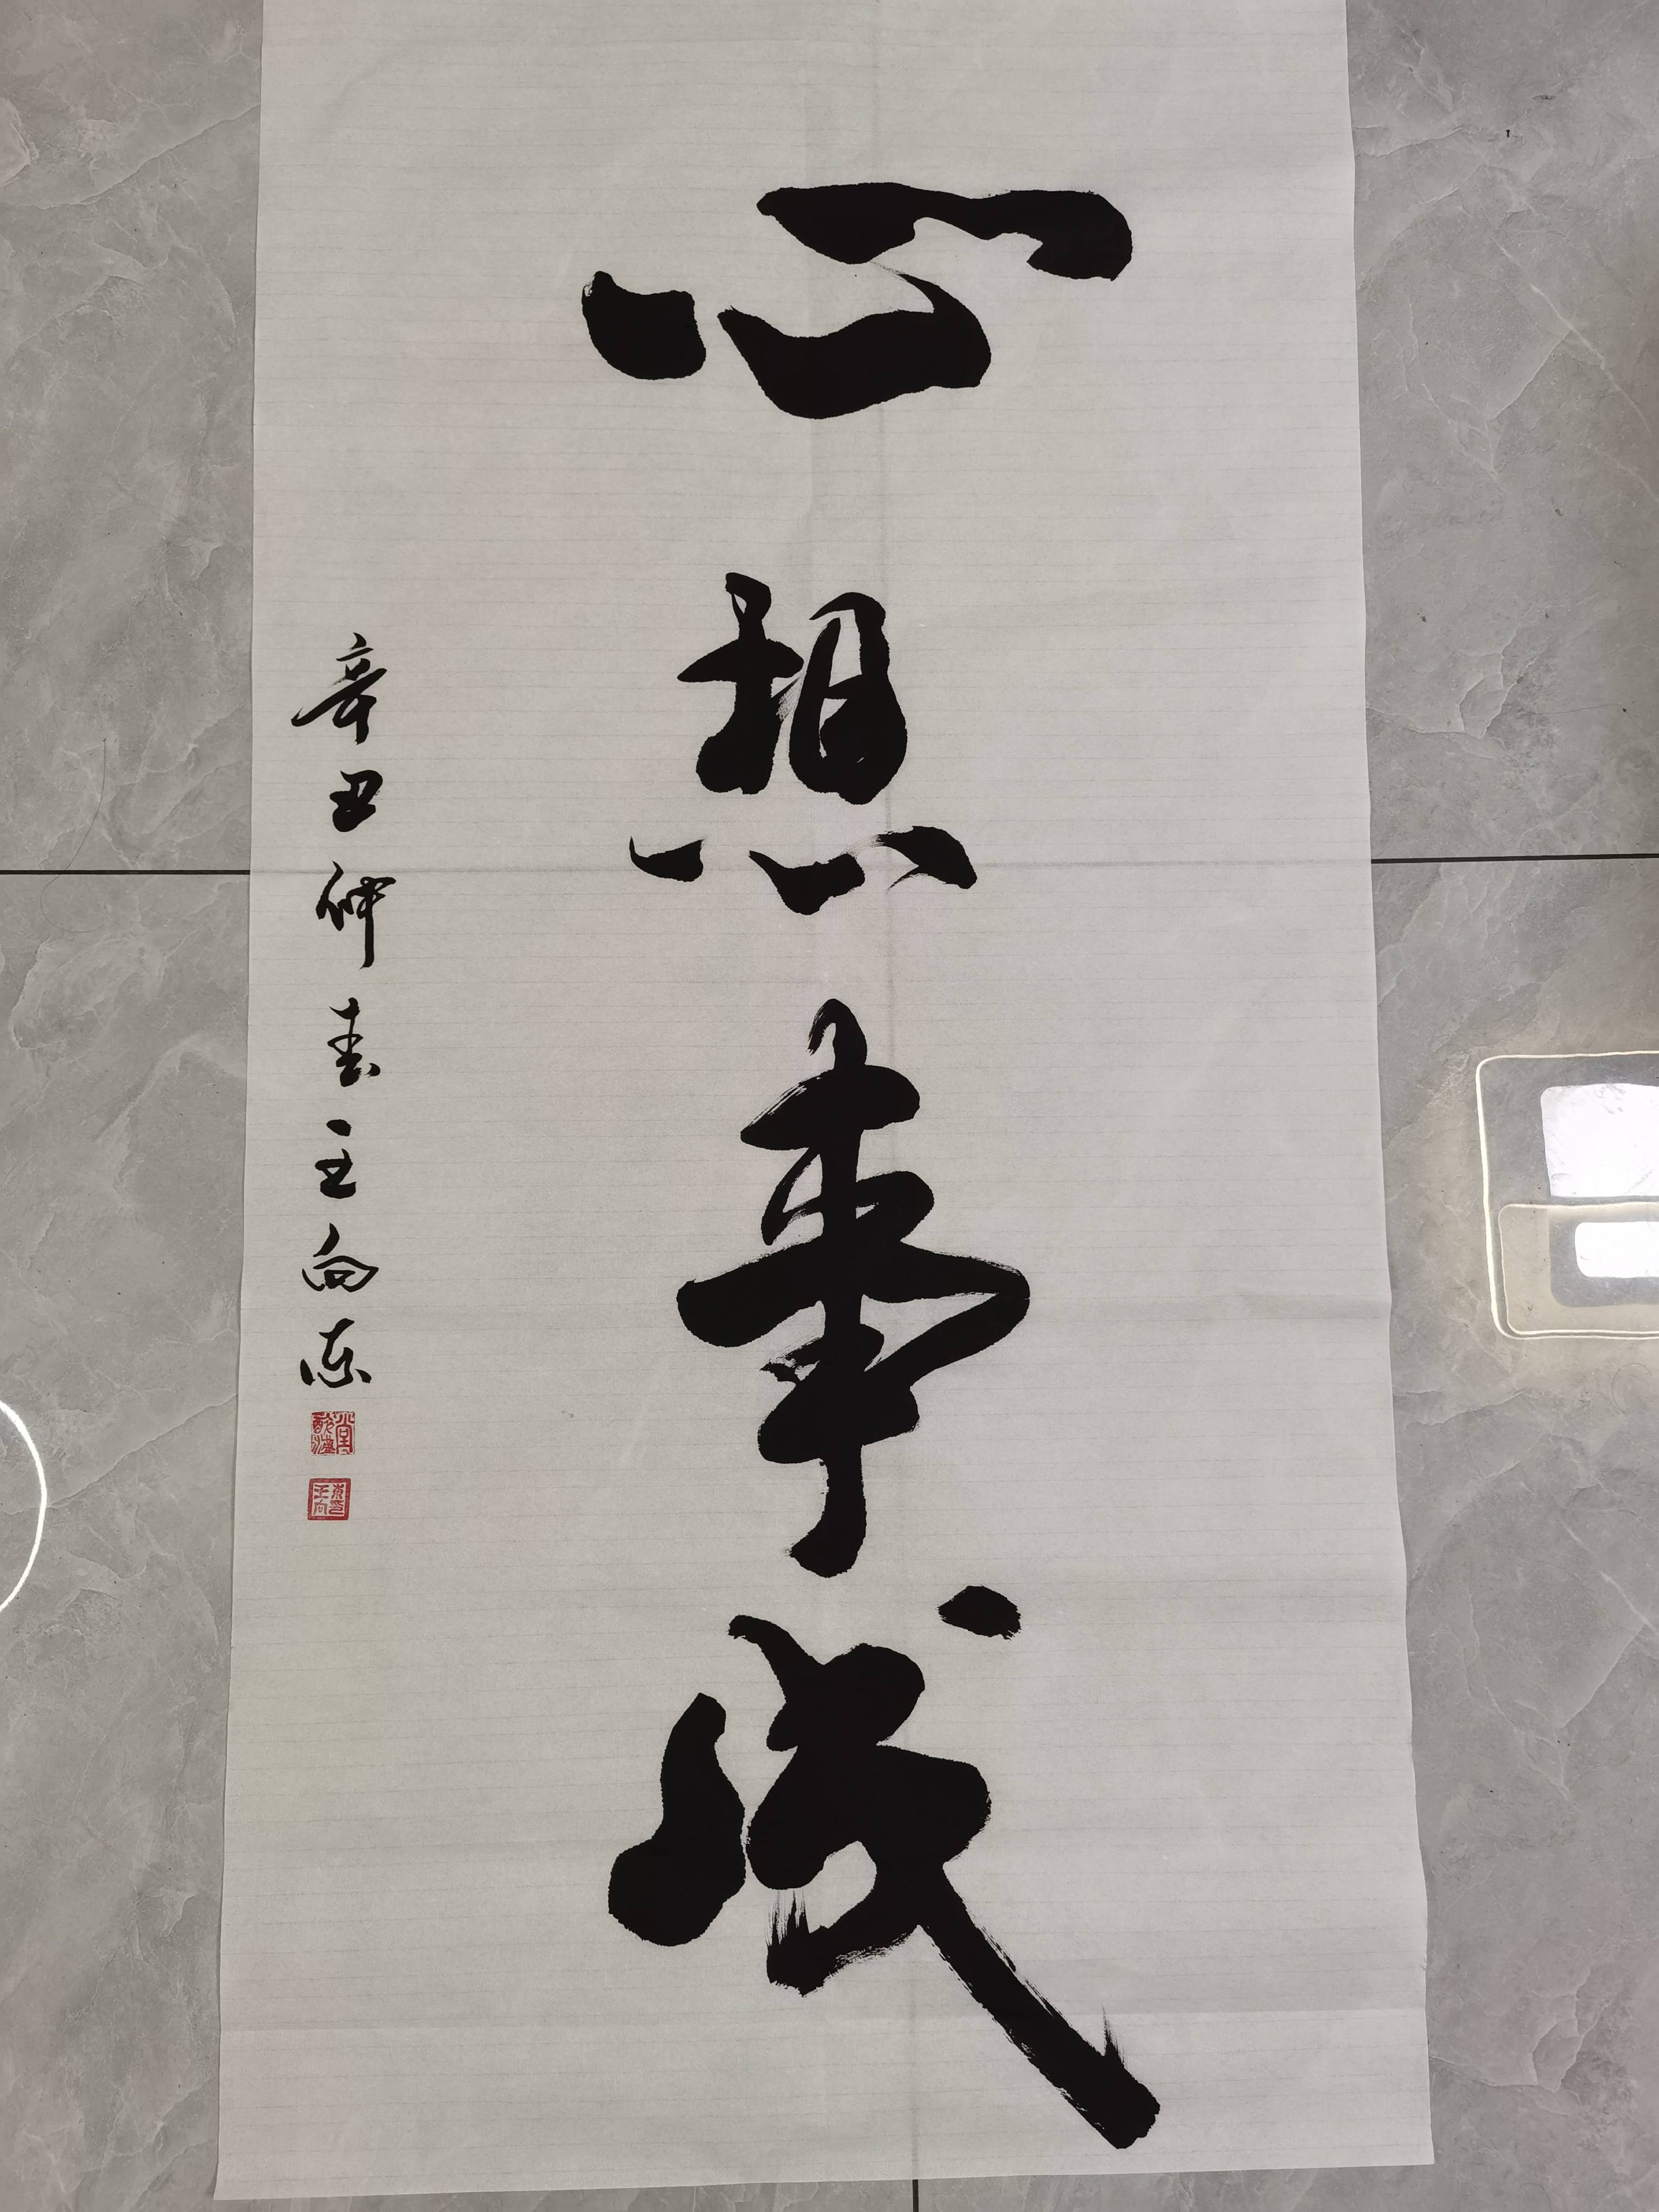 心想事成
辛丑仲春王向东